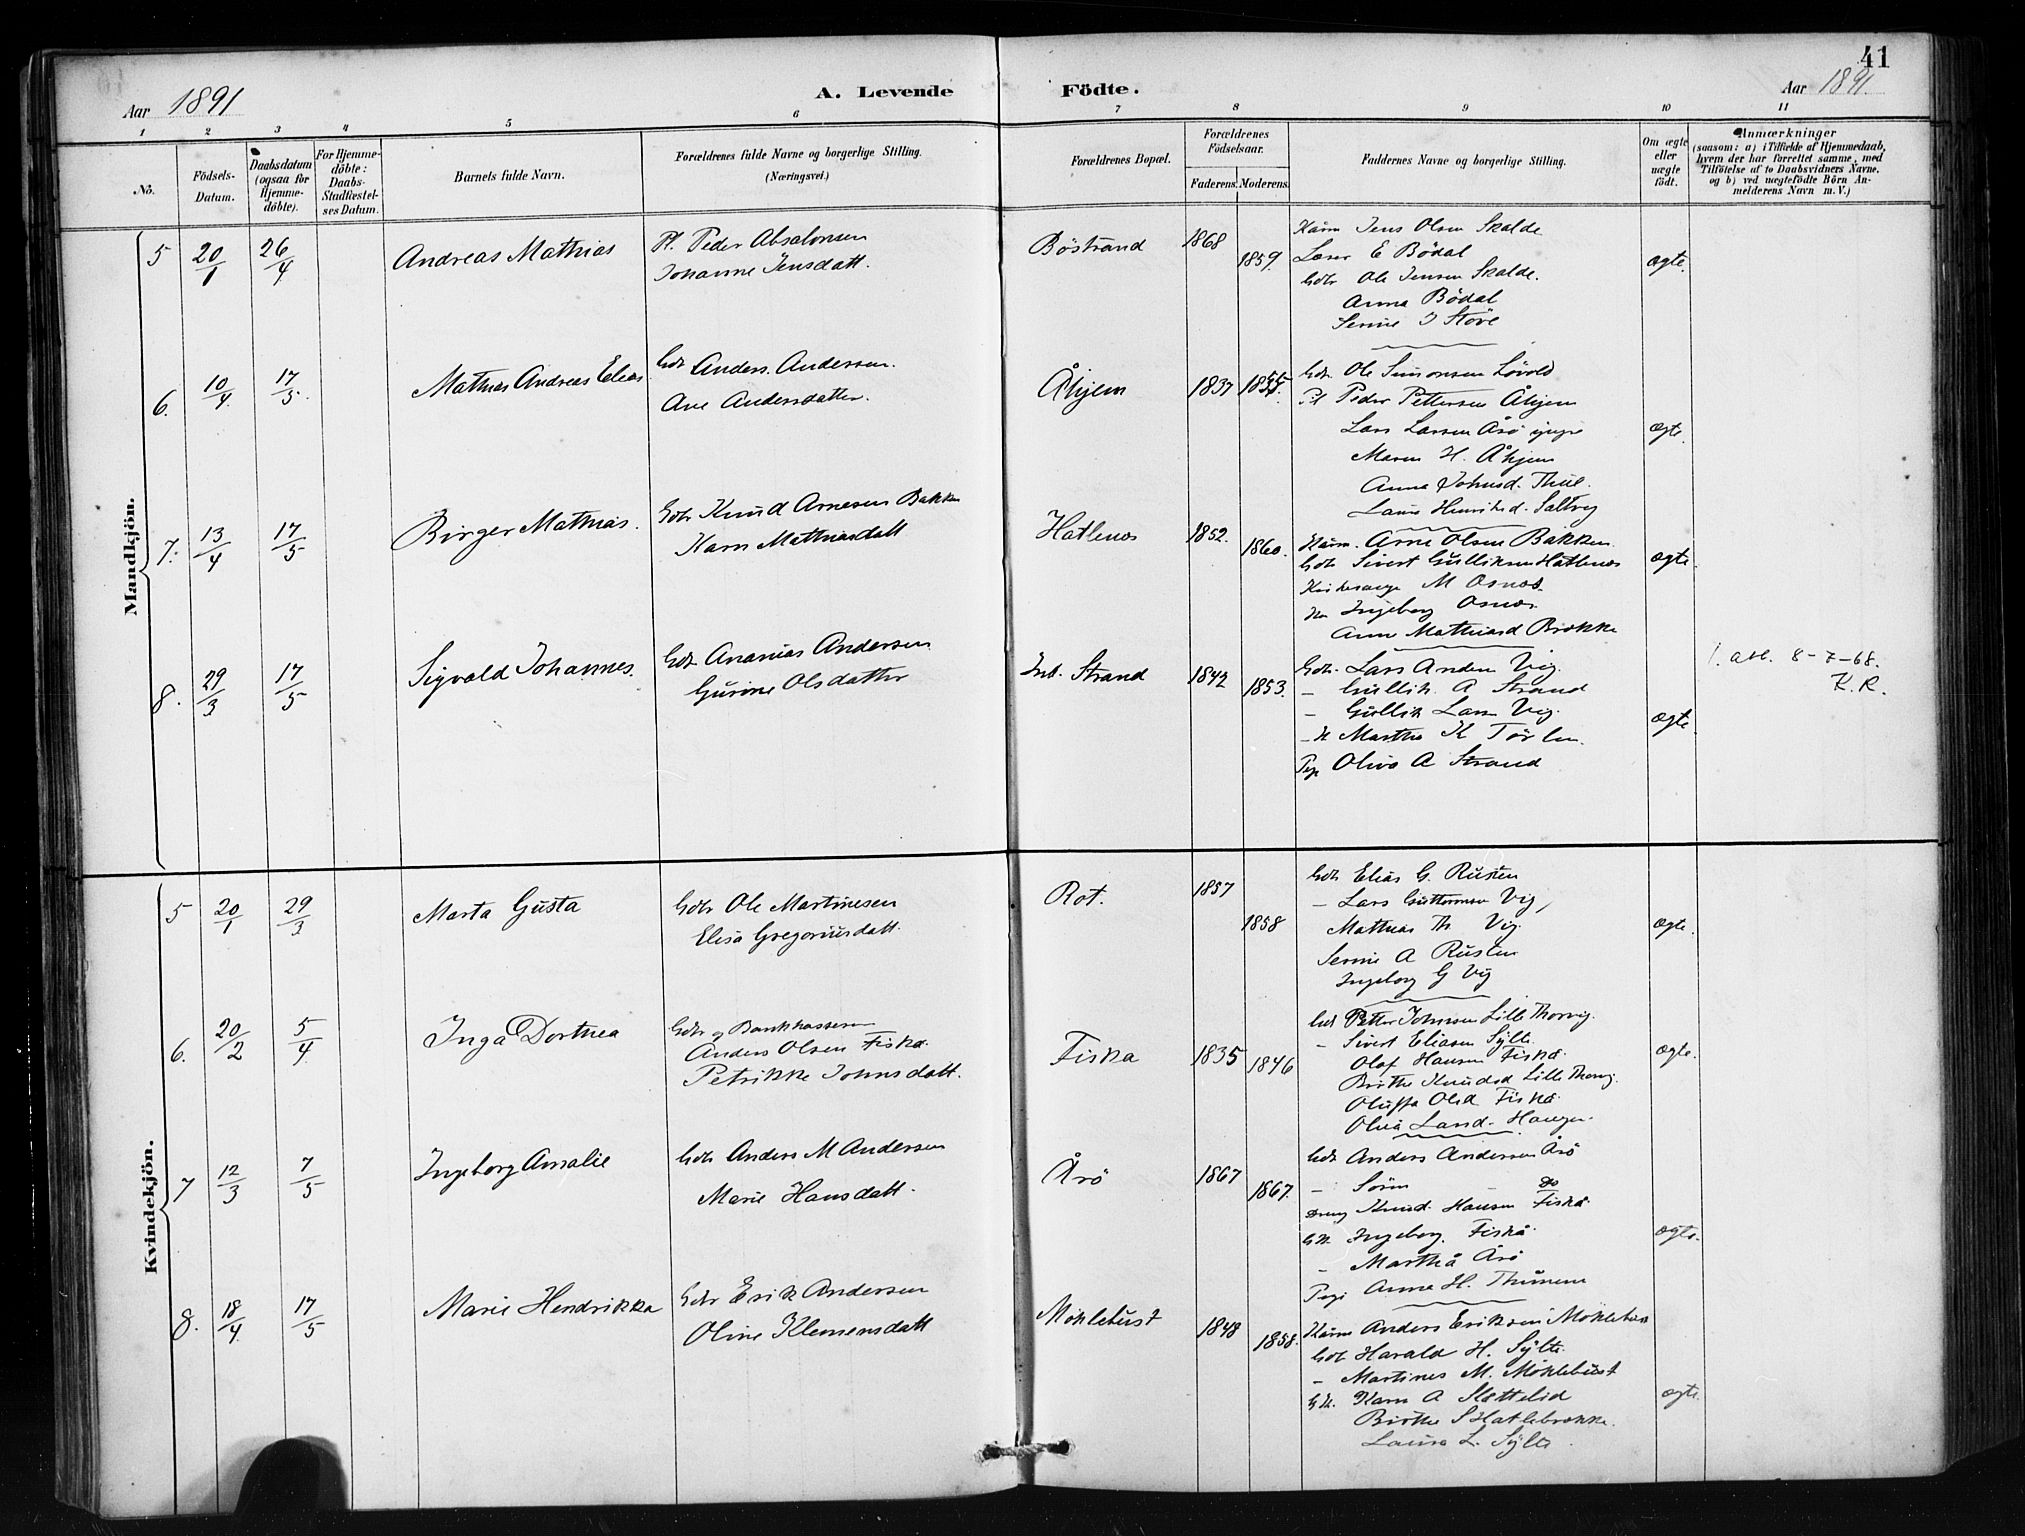 41
Aar 1891
A. Levende Födte.
Aar 1891.
1 2 3 4 5 6 7 8 9 10 11
No.
Födsels-Datum.
Daabsdatum (ogsaa for Hjemme-döbte).
For Hjemme-döbte: Daabs-Stadfæstel-ses Datum.
Barnets fulde Navn.
Forældrenes fulde Navne og borgerlige Stilling. (Næringsvei.)
Forældrenes Bopæl.
Forældrenes Födselsaar.
Faderens. Moderens.
Faddernes Navne og borgerlige Stilling.
Om ægte eller uægte födt.
Anmærkninger
(saasom: a) i Tilfælde af Hjemmedaab,
hvem der har forrettet samme, med
Tilföielse af to Daabsvidners Navne,
og b) ved uægtefödte Börn An-
melderens Navn m. V.)
Mandkjön.
5 20/1 26/4 Andreas Mathias
Pl. Peder Absalonsen
Johanne Jensdatt.
Böstrand 1868 1859.
Kårm Jens Olsen Skalde
Læser E Bödal
Gdbr Ole Jensen Skalde.
Anna Bödal
Senie J Störe
ægte.
6. 10/4 17/5. Mathias Andreas Elias
Gdr Anders Andersen.
Ane Andersdatter.
Åhjem 1837 1855.
Gdr. Ole Simonsen Lövold
Pl Peder Pettersen Åhjem
Lars Larsen Årö yngre
Maren H. Åhjem
Anna Johnsd. Thue
Laura Henriksd. Saltvig
ægte.
7. 13/4 17/5 Birger Mathias.
Gdr Knud Arnesen Bakken
Karn Mathiasdatt
Hatlenes 1852. 1860.
Kårm. Arne Olsen Bakken.
Gdr Sivert Gulliksen Hatlenes
Kirkesanger M Osnes.
Ingeborg Osnes.
Anne Mathiasd Brekke
ægte.
8. 29/3 17/5 Sigvald Johannes.
Gdr. Ananias Andersen
Gurine Olsdatter
Ind. Strand 1842 1853.
Gdr. Lars Anders Vig.
– Gullik A Strand
– Gullik Lars Vig.
– K Martha K Törlen.
Pige Oliva A Strand
ægte.
1. att. 8-7-68.
K. R.
Kvindekjön.
5 20/1 29/3 Marta Gusta
Gdbr Ole Martinesen
Elisa Gregoriusdatt.
Rot. 1857 1858
Gdr Elias G. Rusten
– Lars Guttormsen Vig
Mathias Th Vig.
Senie A Rusten
Ingeborg G Vig
ægte.
6. 20/2 5/4. Inga Dorthea
Gdbr og Bankkasserer
Anders Olsen Fiskå.
Petrikke Johnsdatt.
Fiskå 1835 1846
Gdr Petter Johnsen Lille Thorvig.
– Sivert Eliasen Sylte.
Olaf Hansen Fiskå.
Birthe Knudsd Lille Thorvig.
Oluffa Olsd Fiskå.
Olava Larsd. Haugen.
ægte.
7 12/3 7/5 Ingeborg Amalie
Gdbr Anders M Andersen
Marie Hansdatt.
Årö 1867 1867.
Gdr Anders Andersen Årö
– Sören Do
Dreng Knud Hansen Fiskå
Gk Ingeborg Fiskå.
– Marthå Årö
Pige Anna H. Thunem
ægte.
8. 18/4 17/5 Marie Hendrikka
Gdbr Erik Andersen
Oline Klemensdatt
Möklebust 1848 1858.
Kårm Anders Eriksen Möklebust
Gdr Harald H. Sylte.
– Martines M. Möklebust
Gk. Karn A Slettelid
Birthe S Hatlebrekke.
Laura L. Sylte.
ægte.